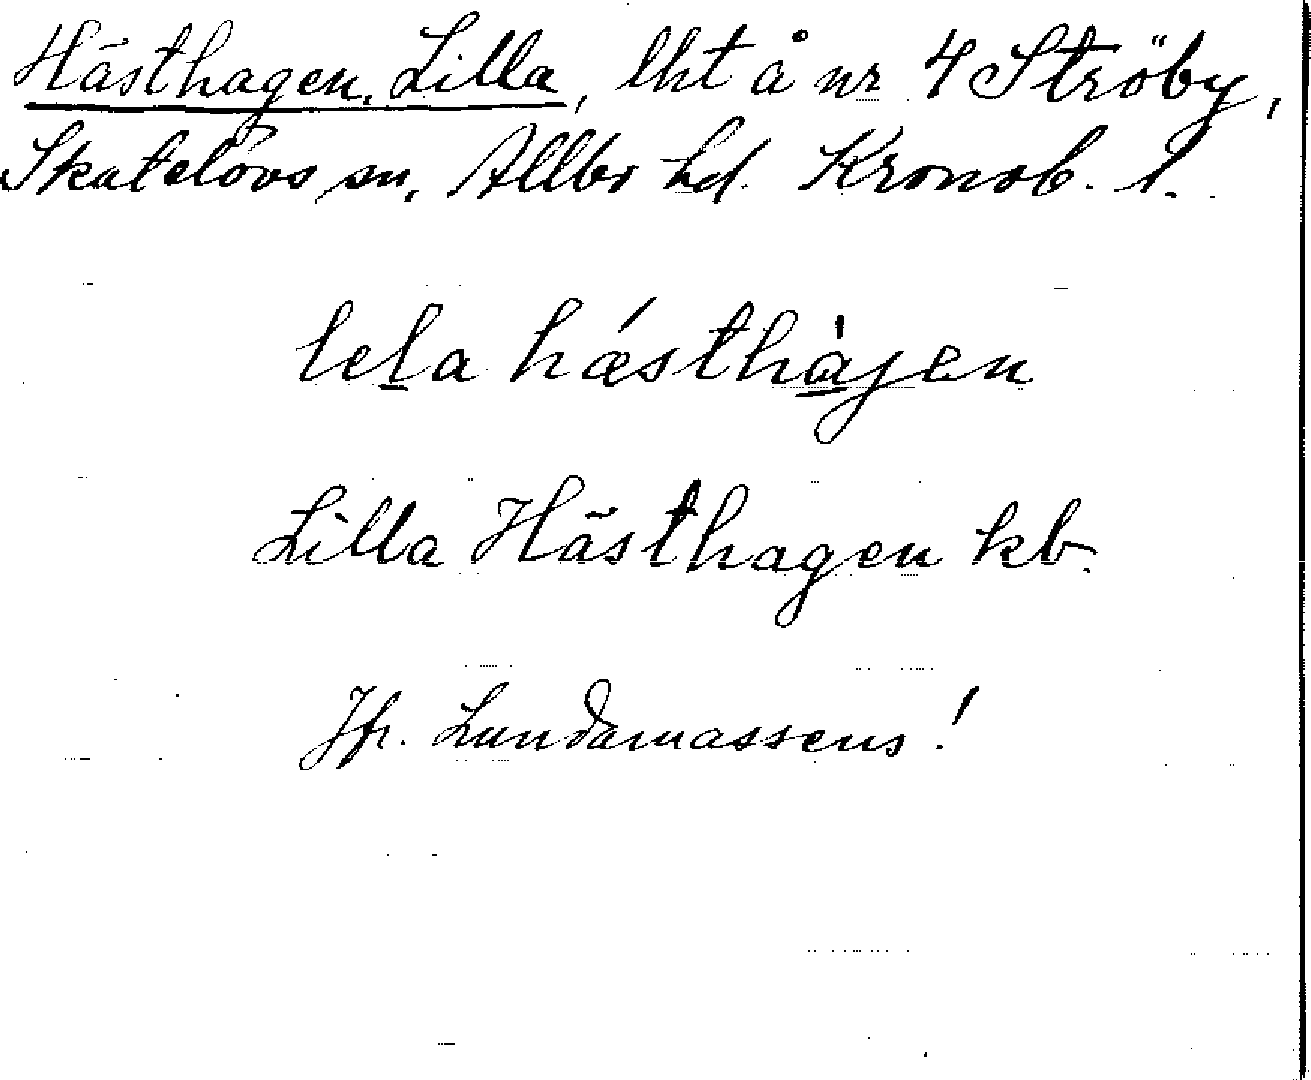 Hästhagen, Lilla, lht å nr 4 Ströby,
Skatelövs sn, Allbo hd. Kronob. l.
lela hǽsthàjen
Lilla Hästhagen kb.
Jfr. Lundamassens!